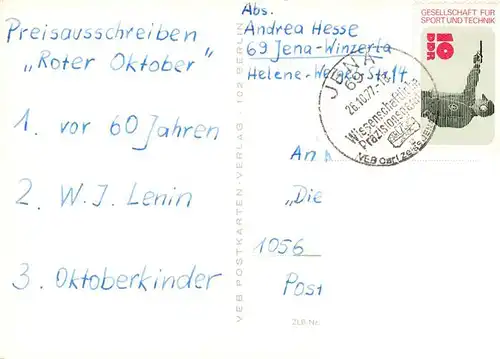 Preisausschreiben
„Roter Oktober"
1. vor 60 Jahren
2. W. J. Lenin
3. Oktoberkinder
VEB POSTKARTEN-VERLAG · 102 BERLIN
Abs.
Andrea Hesse
69 Jena-Winzerla
Helene-Weigel-Str. 14
GESELLSCHAFT FÜR
SPORT UND TECHNIK
10
DDR
JENA
69
26.10.77-18
VEB Carl Zeiss JENA
An
„Die
1056
Post
ZLB-Nr.